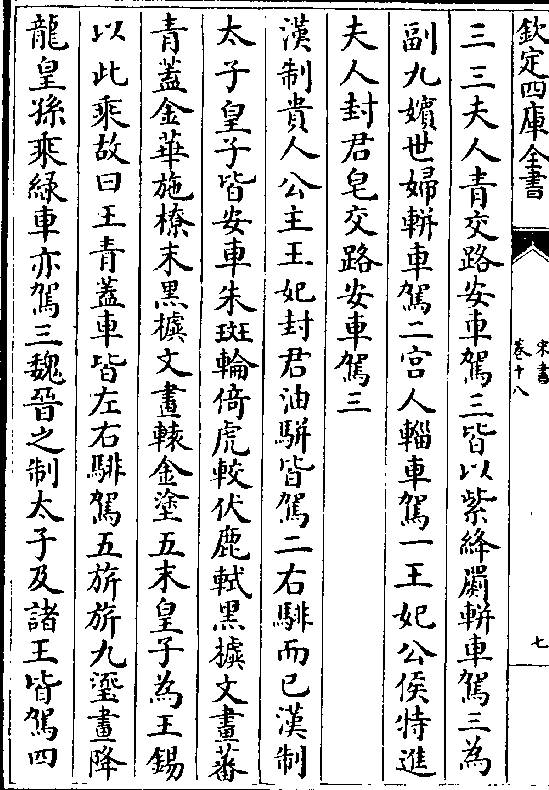 欽定四庫全書
宋書
卷十八
七
三三夫人青交路安車駕三皆以紫絳罽軿車駕三為
副九嬪世婦軿車駕二宫人輜車駕一王妃公侯特進
夫人封君皂交路安車駕三
漢制貴人公主王妃封君油軿皆駕二右騑而已漢制
太子皇子皆安車朱班輪倚虎較伏鹿軾黒㯫文畫蕃
青蓋金華施橑末黒㯫文畫轅金塗五末皇子為王錫
以此乘故曰王青蓋車皆左右騑駕五旂旂九瀣畫降
龍皇孫乘緑車亦駕三魏晉之制太子及諸王皆駕四